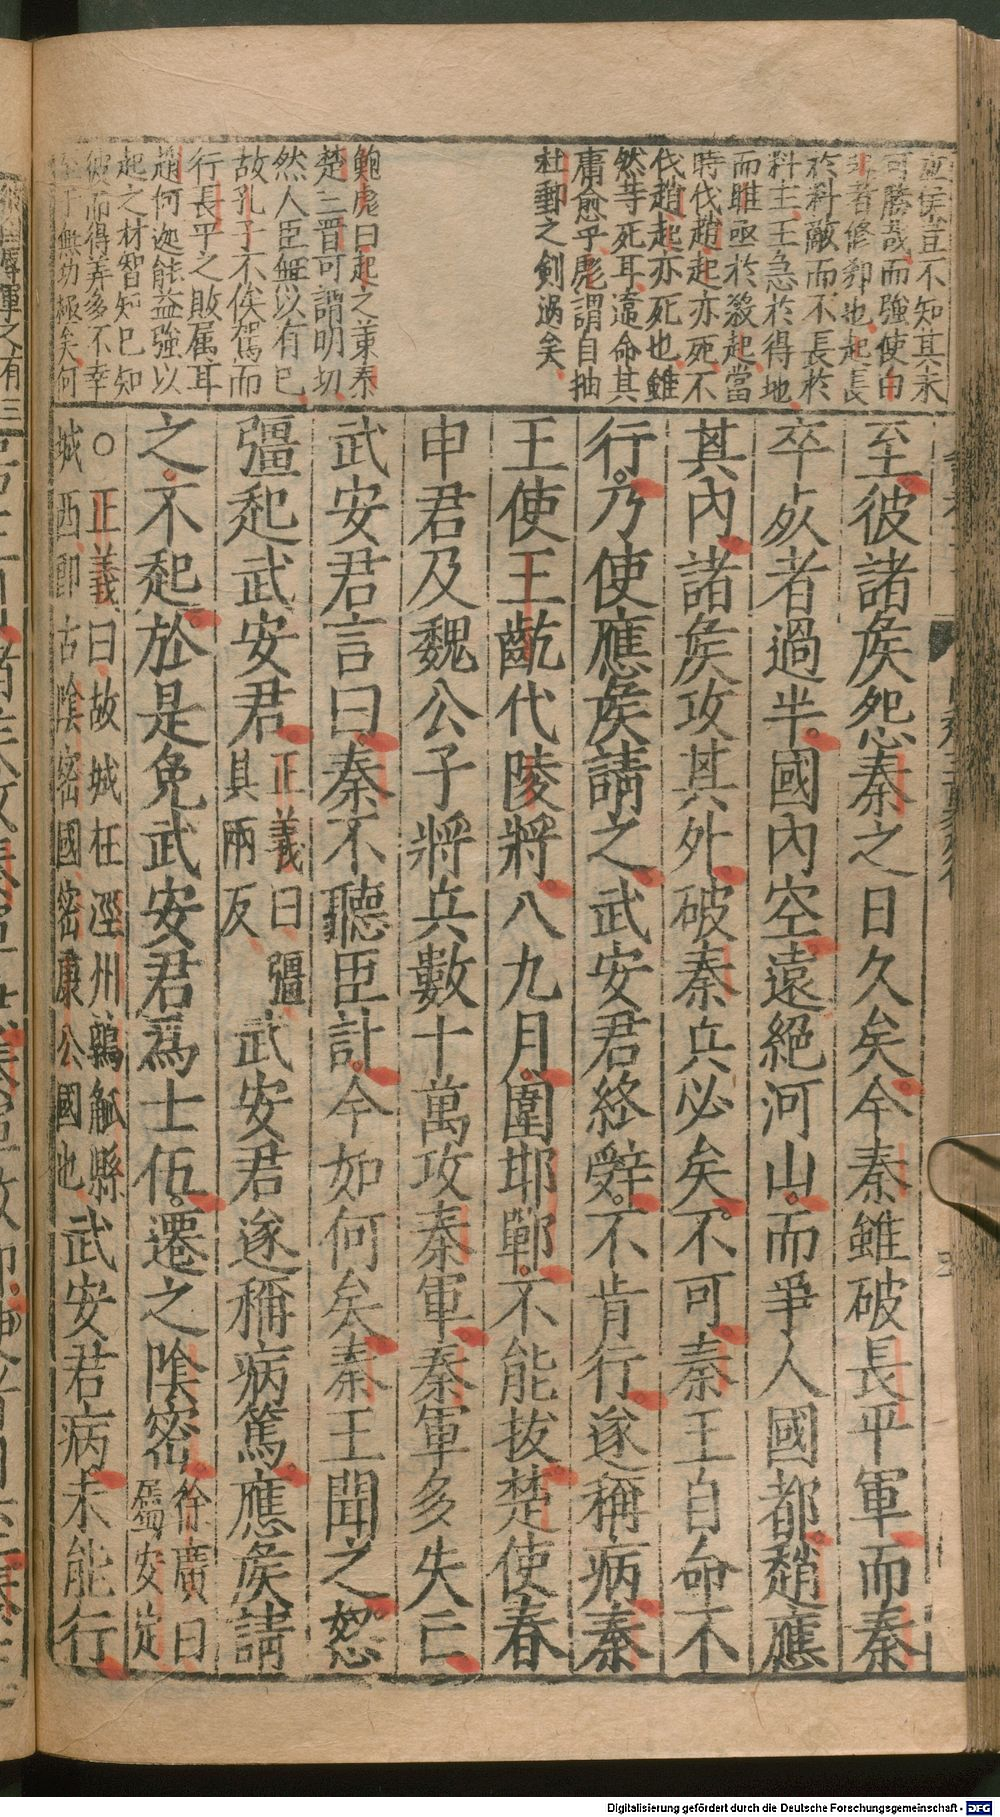 至彼諸矦怨秦之日久矣今秦雖破長平軍而秦
卒死者過半國內空遠絕河山而爭人國都趙應
其內諸矦攻其外破秦兵必矣不可秦王自命不
行乃使應矦請之武安君終辭不肯行遂稱病秦
王使王齕代陵將八九月圍邯鄲不能拔楚使春
申君及魏公子將兵數十萬攻秦軍秦軍多失亡
武安君言曰秦不聽臣計今如何矣秦王聞之怒
彊起武安君正義曰彊
其兩反武安君遂稱病篤應矦請
之不起於是免武安君爲士伍遷之陰密徐廣曰
屬安定
○正義曰故城在涇州鶉觚縣
城西卽古陰密國密康公國也武安君病未能行
可勝哉而強使白
起者修郤也起長
於料敵而不長於
料主王急於得地
而睢亟於殺起當
時伐趙起亦死不
伐趙起亦死也雖
然等死耳違命其
庸愈乎彪謂自抽
杜郵之劍過矣
鮑彪曰起之策秦
楚三晋可謂明切
然人臣無以有己
故孔子不俟駕而
行長平之敗属耳
趙何遽能益強以
起之材智知已知
彼而得筭多不幸
至于無功極矣何
Digitalisierung gefördert durch die Deutsche Forschungsgemeinschaft - DFG